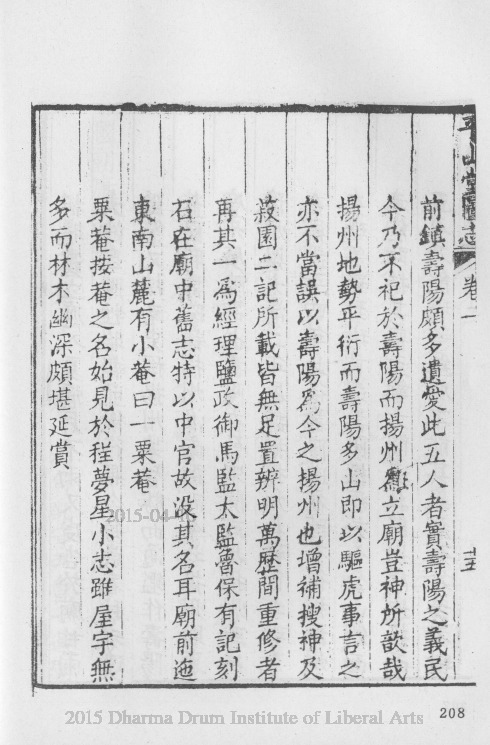 平山堂圖志 卷一
十五
前鎮壽陽頗多遺愛此五人者實壽陽之義民
今乃不祀於壽陽而揚州立廟豈神所歆哉
揚州地勢平衍而壽陽多山即以驅虎事言之
亦不當誤以壽陽爲今之揚州也增補搜神及
菽園二記所載皆無足置辨明萬歷間重修者
再其一爲經理鹽政御馬監太監魯保有記刻
石在廟中舊志特以中官故没其名耳廟前迤
東南山麓有小菴曰一粟菴
粟菴按菴之名始見於程夢星小志雖屋宇無
多而材木幽深頗堪延賞
2015-04-
208
2015 Dharma Drum Institute of Liberal Arts